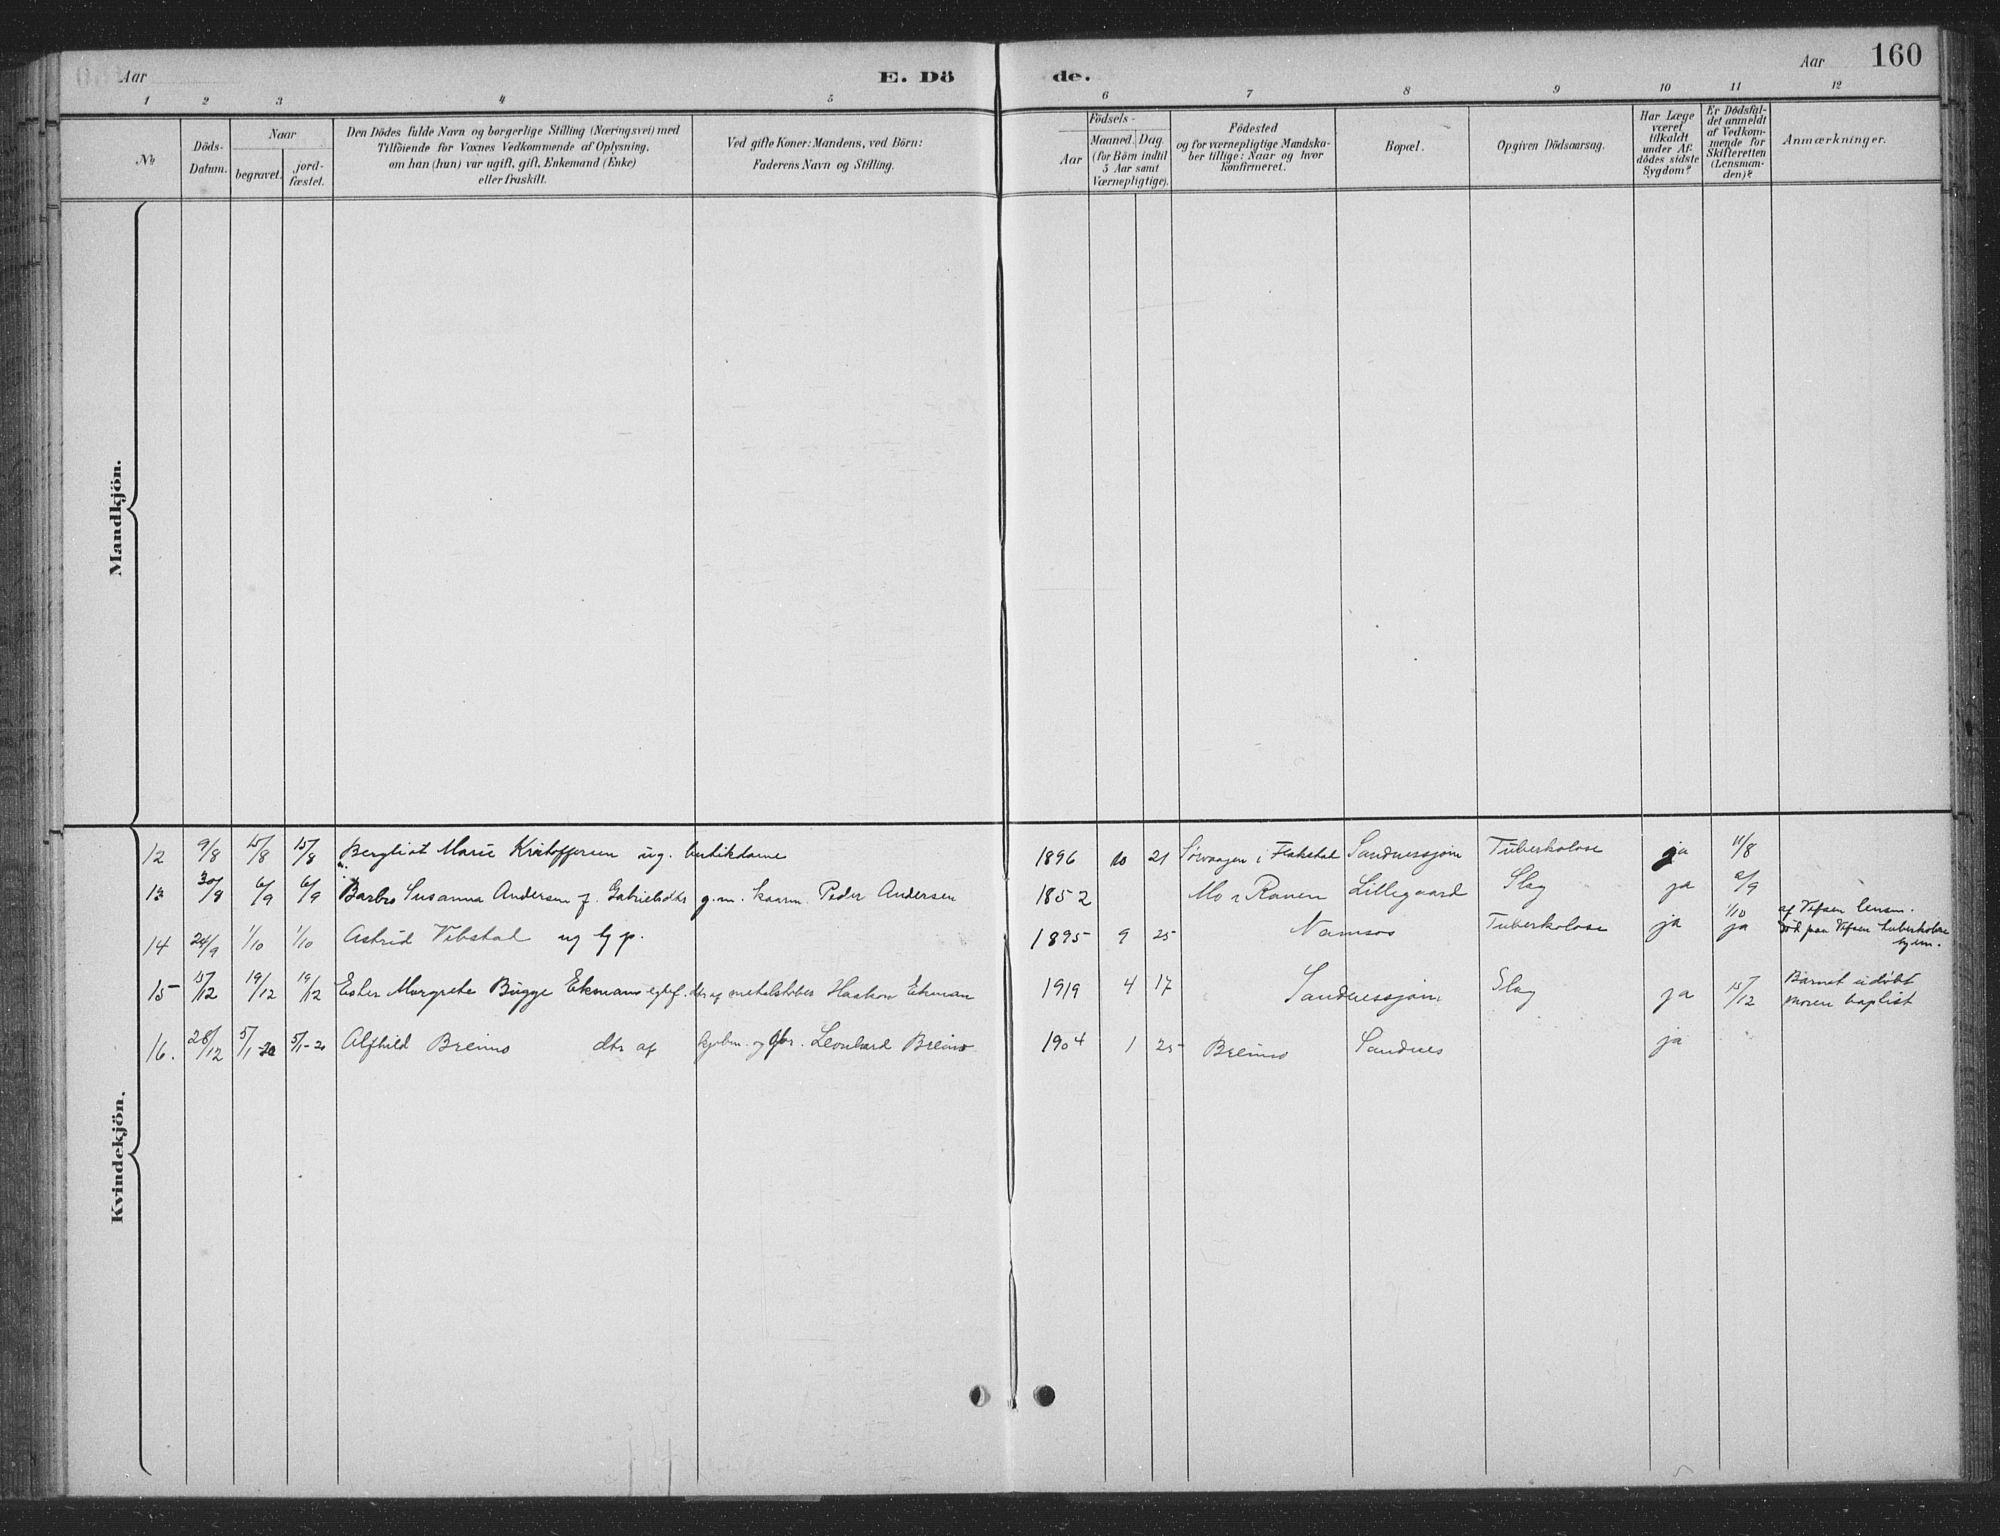 Aar
E. Dö
de.
Aar
160
1 2 3 4 5 6 7 8 9 10 11 12
No
Döds-Datum.
Naar
begravet.
jord-fæstet.
Den Dödes fulde Navn og borgerlige Stilling (Næringsvei) med
Tilföiende for Voxnes Vedkommende af Oplysning,
om han (hun) var ugift, gift, Enkemand (Enke)
eller fraskilt.
Ved gifte Koner: Mandens, ved Börn:
Faderens Navn og Stilling.
Födsels-
Aar
Maaned. Dag.
(for Börn indtil
5 Aar samt
Værnepligtige).
Födested
og for værnepligtige Mandska-
ber tillige: Naar og hvor
konfirmeret.
Bopæl.
Opgiven Dödsaarsag.
Har Læge
været
tilkaldt
under Af-
dödes sidste
Sygdom?
Er Dödsfal-
det anmeldt
af Vedkom-
mende for
Skifteretten
(Lensman-
den)?
Anmærkninger.
Mandkjön.
Kvindekjön.
12 9/8 15/8 15/8 Bergliot Marie Kristoffersen ug. butikdame 1896 10 21 Sørvaagen i Flakstad Sandnessjøen Tuberkolose ja 11/8
13 30/8 6/9 6/9 Barbro Susanna Andersen f. Gabrielsdtr g.m. kaarm. Peder Andersen 1852 Mo i Ranen Lillegaard Slag ja 2/9
14 24/9 1/10 1/10 Astrid Vibstad ug tj.p. 1895 9 25 Namsos Tuberkolose ja 1/10 ja af Vefsen lensm.
død paa Vefsen tuberkolose
hjem.
15 15/12 19/12 19/12 Ester Margrethe Bugge Ekmans egtef. dtr af metalstøber Haakon Ekman 1919 4 17 Sandnessjøen Slag ja 15/12 Barnet udøbt
moren baptist
16. 28/12 5/1-20 5/1-20 Alfhild Breimo dtr af kjøbm. og gbr. Leonhard Breimo 1904 1 25 Breimo Sandnes ja